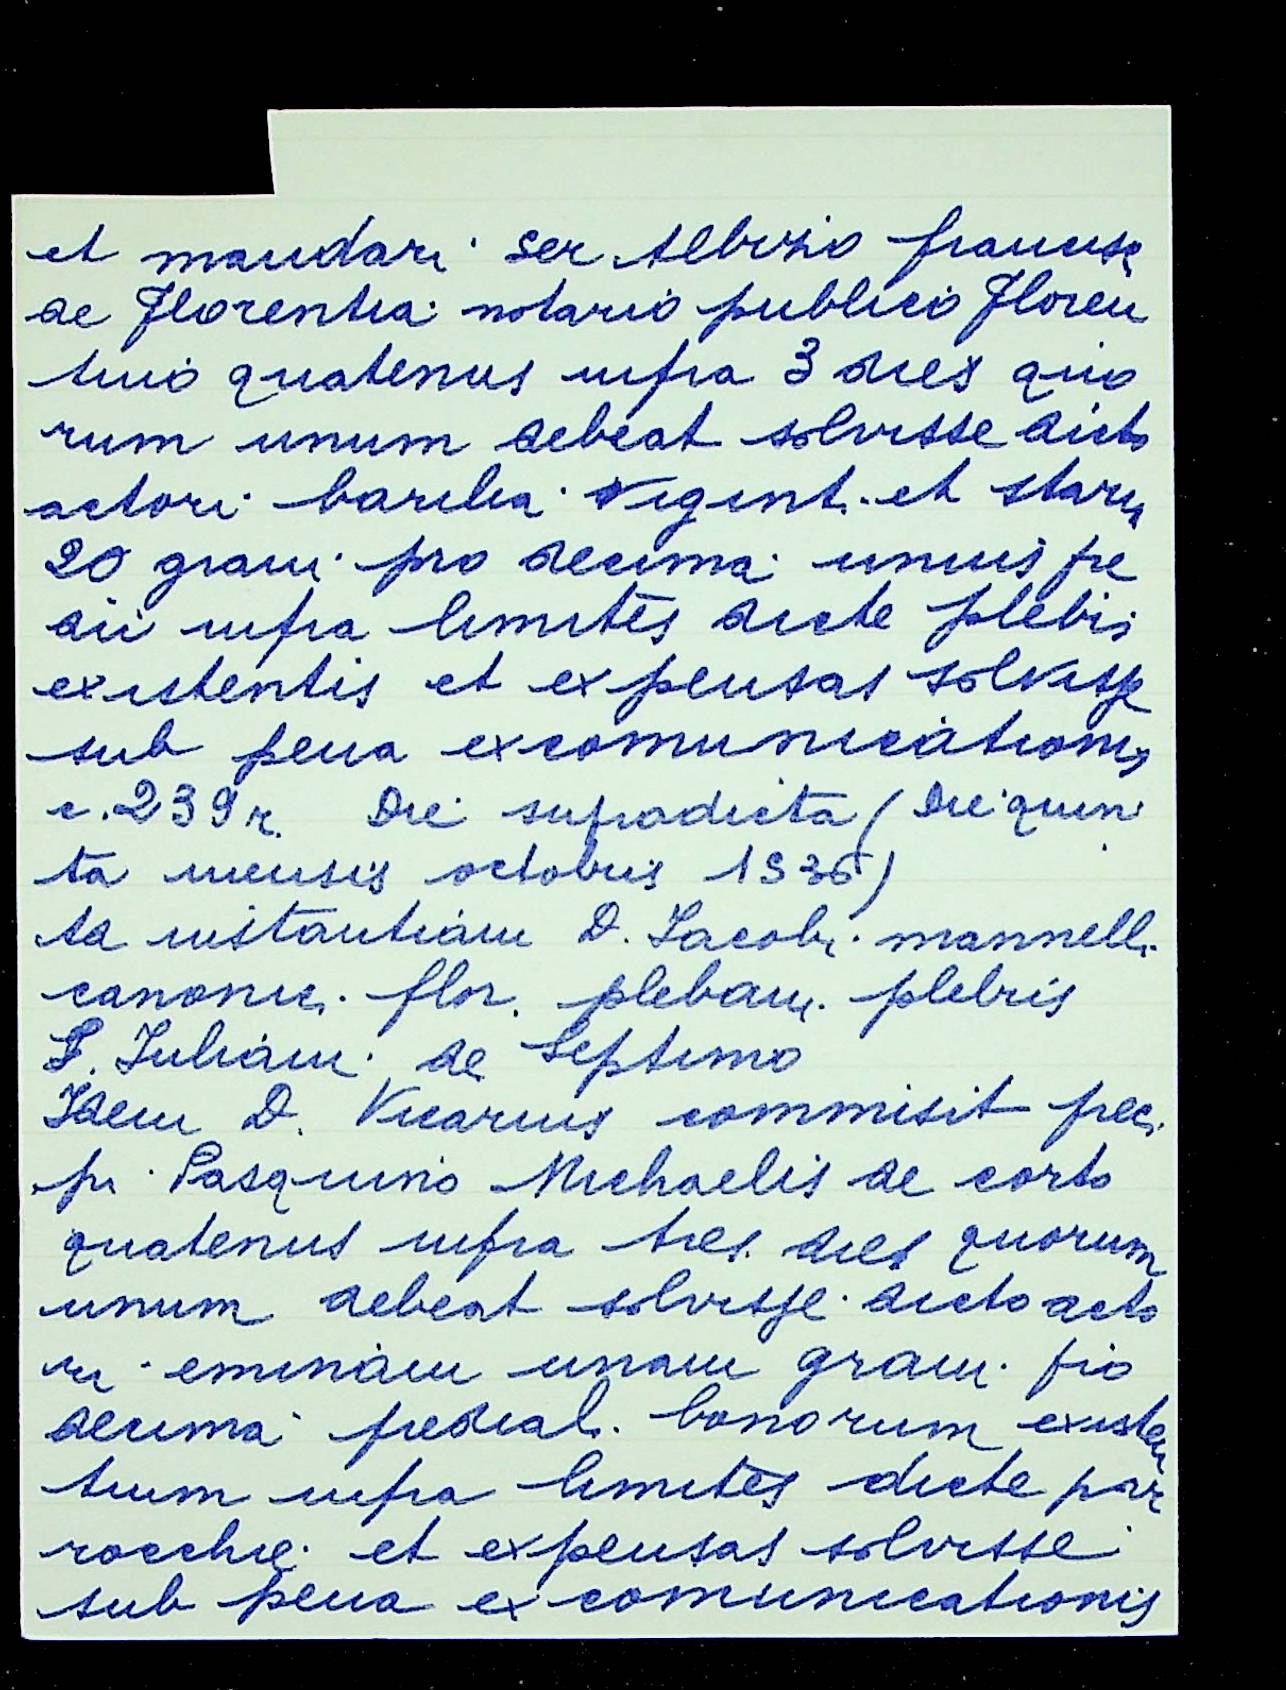 et mandari ser Albizio francisci
de Florentia notario publico Floren
tino quatenus infra 3 dies quo
rum unum debeat solvisse dicto
actori barilia vigint. et staria
20 grani pro decima unius pre
dii infra limites dicte plebis
existentis et expensas solvisse
sub pena excomunicationis
c. 239 r. Die supradicta (Die quin
ta mensis octobris 1336)
Ad instantiam D. Iacobi mannelli
canonic. flor. plebani plebis
S. Iuliani de Septimo
Idem D. Vicarius commisit prec.
pr. Pasquino Michaelis de corto
quatenus infra tres dies quorum
unum debeat solvisse dicto acto
ri eminam unam grani pro
decima predial. bonorum existen
tium infra limites dicte par
rocchie et expensas solvisse
sub pena excomunicationis